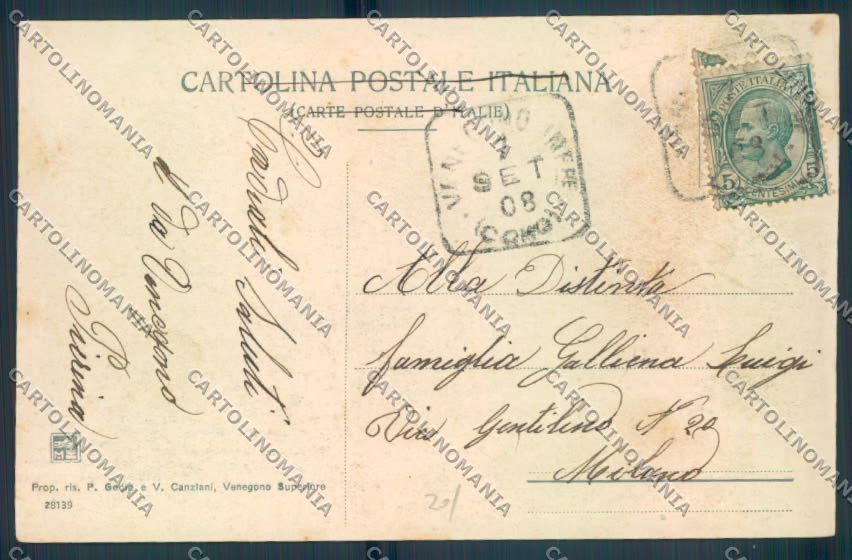 CARTOLINA POSTALE ITALIANA
(CARTE POSTALE D'ITALIE)
POSTE ITALIANE
5 CENTESIMI 5
SET
08
(COMO)
Cordiali Saluti
da Venegono
Pierina
Alla Distinta
famiglia Galliena Luigi
Via Gentilino N 20
Milano
Prop. ris. P. e V. Canziani, Venegono Superiore
28139
20/
CARTOLINOMANIA